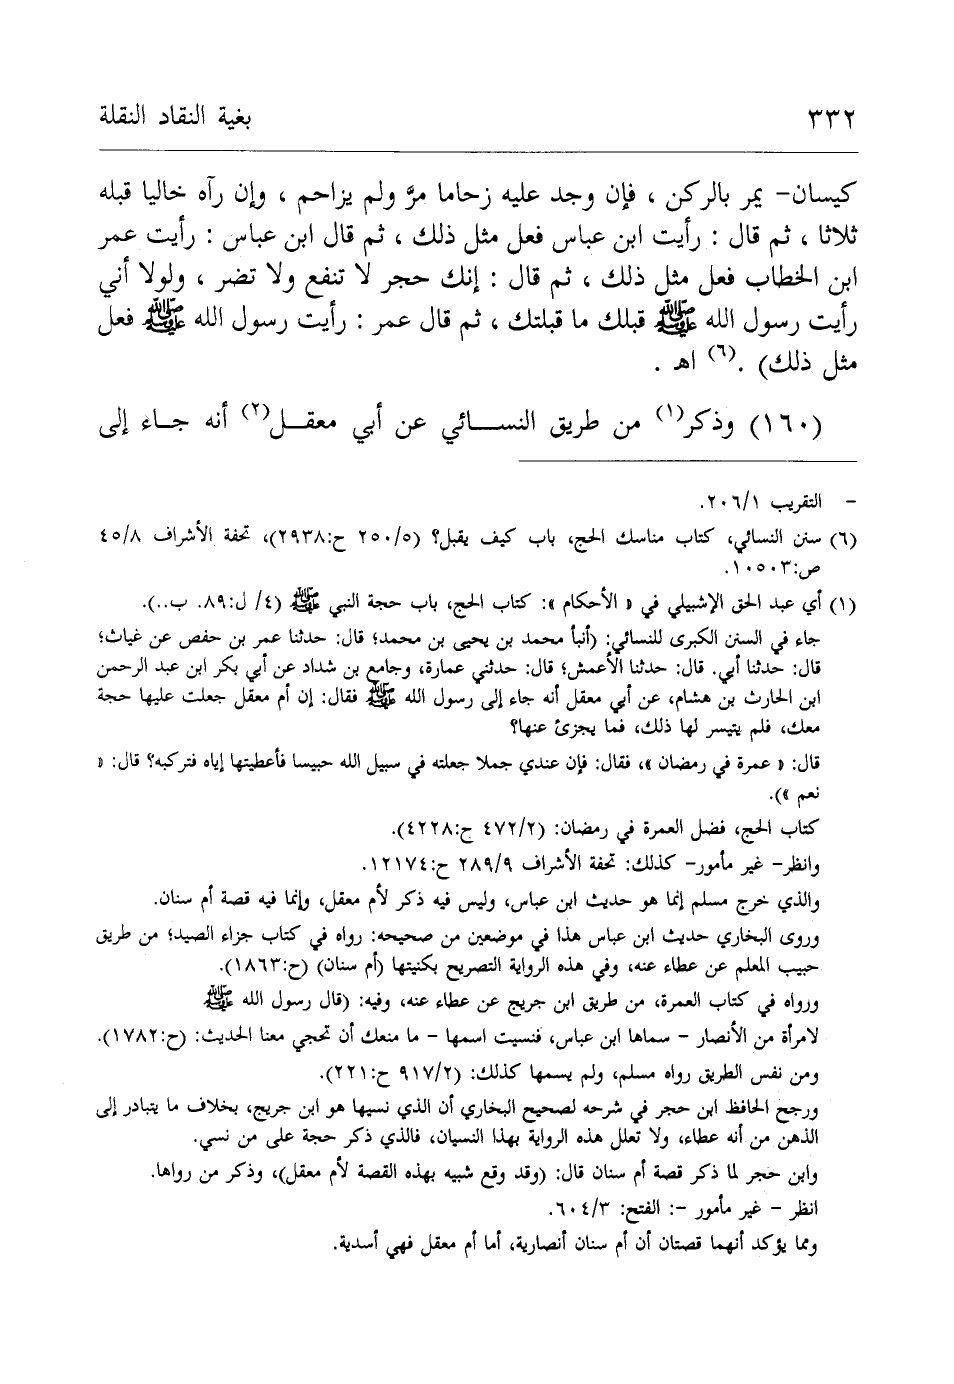 ٣٣٢ بغية النقاد النقلة
كيسان- يمر بالركن ، فإن وجد عليه زحاما مرَّ ولم يزاحم ، وإن رآه خاليا قبله
ثلاثا ، ثم قال : رأيت ابن عباس فعل مثل ذلك ، ثم قال ابن عباس : رأيت عمر
ابن الخطاب فعل مثل ذلك ، ثم قال : إنك حجر لا تنفع ولا تضر ، ولولا أني
رأيت رسول الله ﷺ قبلك ما قبلتك ، ثم قال عمر : رأيت رسول الله ﷺ فعل
مثل ذلك) .(٦) اهـ .
(١٦٠) وذكر(١) من طريق النســـائي عن أبي معقـــل(٢) أنه جـاء إلى
- التقريب ٢٠٦/١.
(٦) سنن النسائي، كتاب مناسك الحج، باب كيف يقبل؟ (٢٥٠/٥ ح:٢٩٣٨)، تحفة الأشراف ٤٥/٨
ص:١٠٥٠٣.
(١) أي عبد الحق الإشبيلي في « الأحكام »: كتاب الحج، باب حجة النبي ﷺ (٤/ ل:٨٩. ب..).
جاء في السنن الكبرى للنسائي: (أنبأ محمد بن يحيى بن محمد؛ قال: حدثنا عمر بن حفص عن غياث؛
قال: حدثنا أبي. قال: حدثنا الأعمش؛ قال: حدثني عمارة، وجامع بن شداد عن أبي بكر ابن عبد الرحمن
ابن الحارث بن هشام، عن أبي معقل أنه جاء إلى رسول الله ﷺ فقال: إن أم معقل جعلت عليها حجة
معك، فلم يتيسر لها ذلك، فما يجزئ عنها؟
قال: « عمرة في رمضان »، فقال: فإن عندي جملا جعلته في سبيل الله حبيسا فأعطيتها إياه فتركبه؟ قال: «
نعم »).
كتاب الحج، فضل العمرة في رمضان: (٤٧٢/٢ ح:٤٢٢٨).
وانظر- غير مأمور- كذلك: تحفة الأشراف ٢٨٩/٩ ح:١٢١٧٤.
والذي خرج مسلم إنما هو حديث ابن عباس، وليس فيه ذكر لأم معقل، وإنما فيه قصة أم سنان.
وروى البخاري حديث ابن عباس هذا في موضعين من صحيحه: رواه في كتاب جزاء الصيد؛ من طريق
حبيب المعلم عن عطاء عنه، وفي هذه الرواية التصريح بكنيتها (أم سنان) (ح:١٨٦٣).
ورواه في كتاب العمرة، من طريق ابن جريج عن عطاء عنه، وفيه: (قال رسول الله ﷺ
لامرأة من الأنصار - سماها ابن عباس، فنسيت اسمها - ما منعك أن تحجي معنا الحديث: (ح:١٧٨٢).
ومن نفس الطريق رواه مسلم، ولم يسمها كذلك: (٩١٧/٢ ح:٢٢١).
ورجح الحافظ ابن حجر في شرحه لصحيح البخاري أن الذي نسيها هو ابن جريج، بخلاف ما يتبادر إلى
الذهن من أنه عطاء، ولا تعلل هذه الرواية بهذا النسيان، فالذي ذكر حجة على من نسي.
وابن حجر لما ذكر قصة أم سنان قال: (وقد وقع شبيه بهذه القصة لأم معقل)، وذكر من رواها.
انظر - غير مأمور -: الفتح: ٦٠٤/٣.
ومما يؤكد أنهما قصتان أن أم سنان أنصارية، أما أم معقل فهي أسدية.